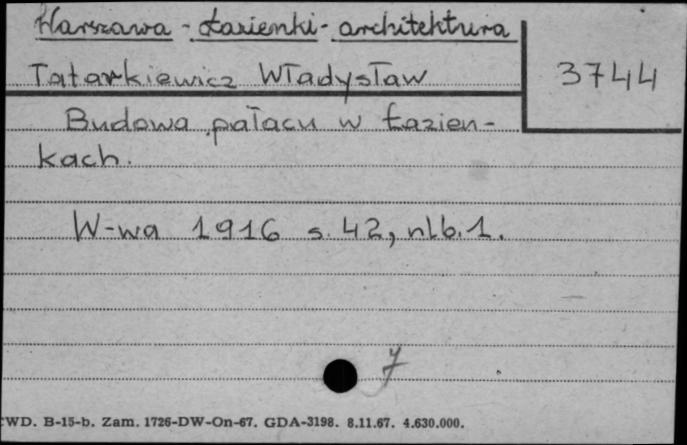 Warszawa - Łazienki - architektura
Tatarkiewicz Władysław
3744
Budowa pałacu w Łazien-
kach.
W-wa 1916 s. 42, nlb. 1.
CWD. B-15-b. Zam. 1726-DW-On-67. GDA-3198. 8.11.67. 4.630.000.